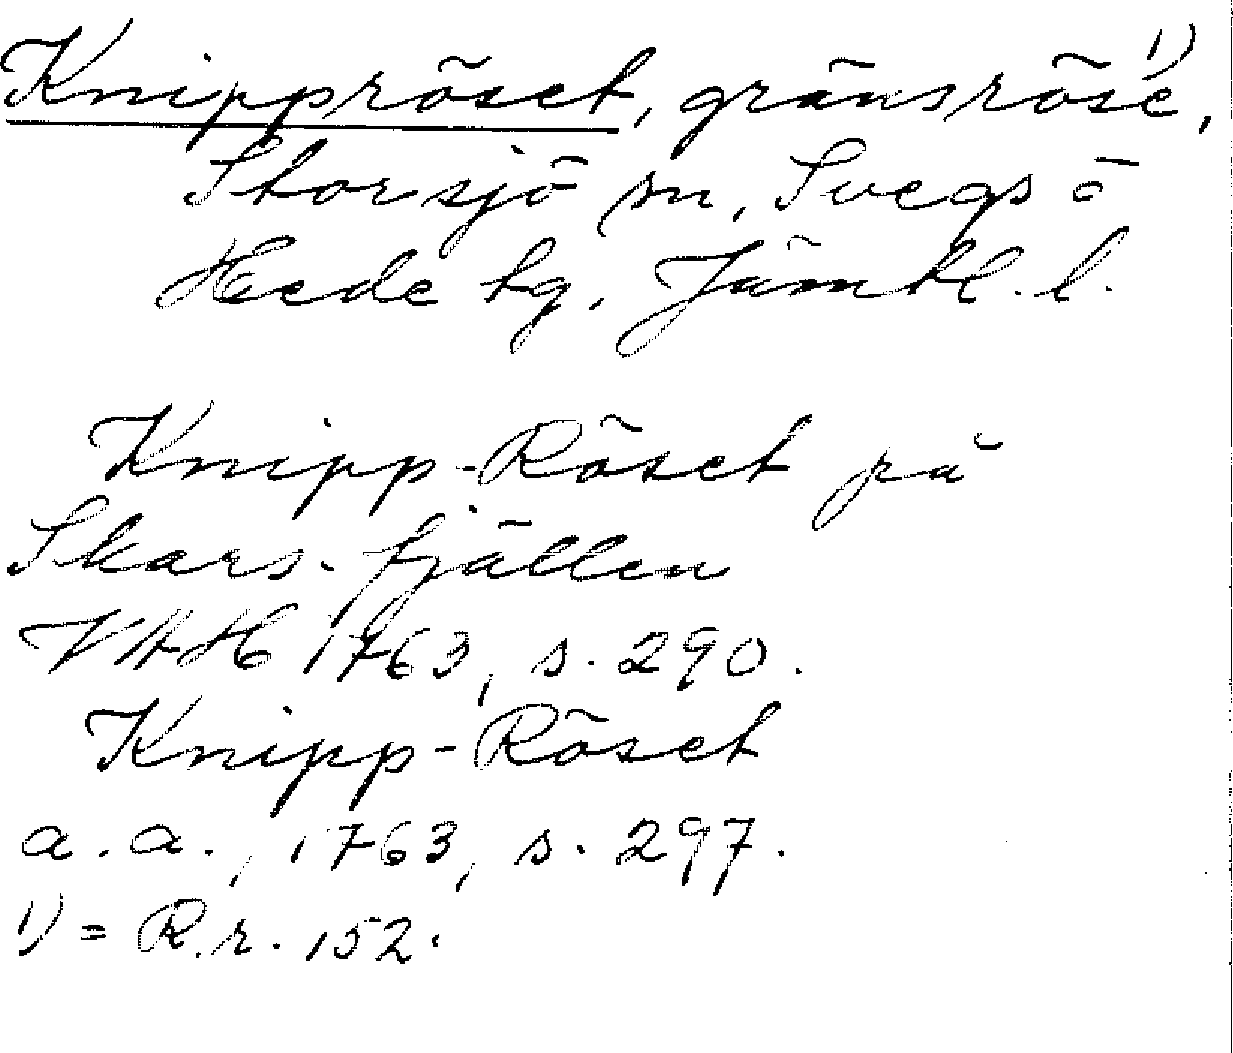 Knippröset, gränsröse¹⁾,
Storsjö sn, Svegs o
Hede tg, Jämtl. l.
Knipp-Röset på
Skars-fjällen
VAH 1763, s. 290.
Knipp-Röset
a. a., 1763, s. 297.
1) = R.r. 152.